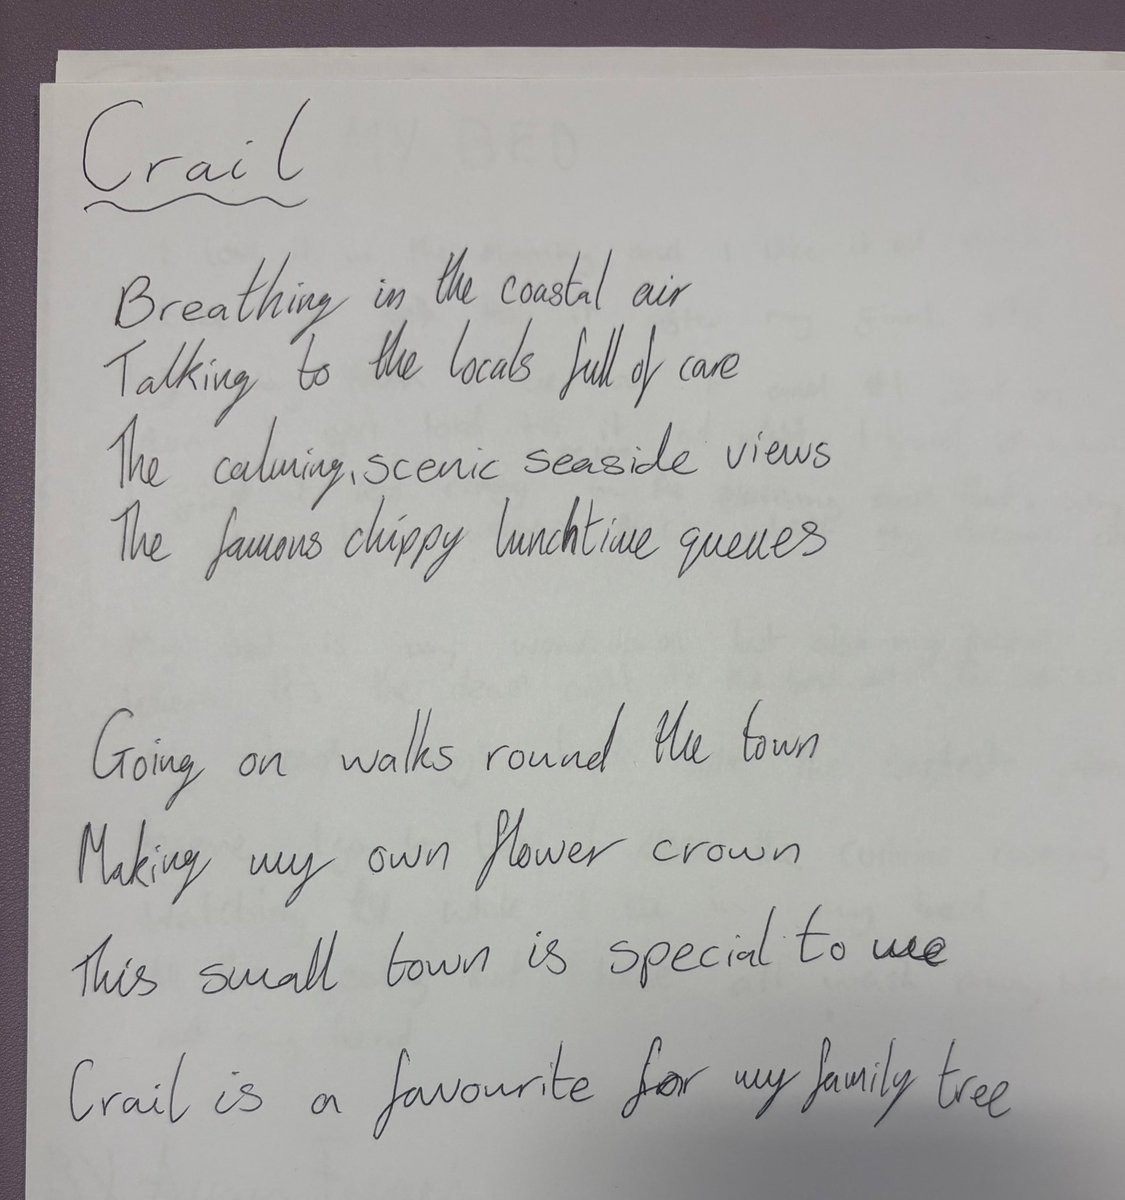 Crail
Breathing in the coastal air
Talking to the locals full of care
The calming, scenic seaside views
The famous chippy lunchtime queues
Going on walks round the town
Making my own flower crown
This small town is special to me
Crail is a favourite for my family tree